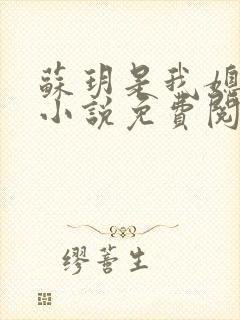 蘇玥是我媳
小說免費閱
繆蓍生